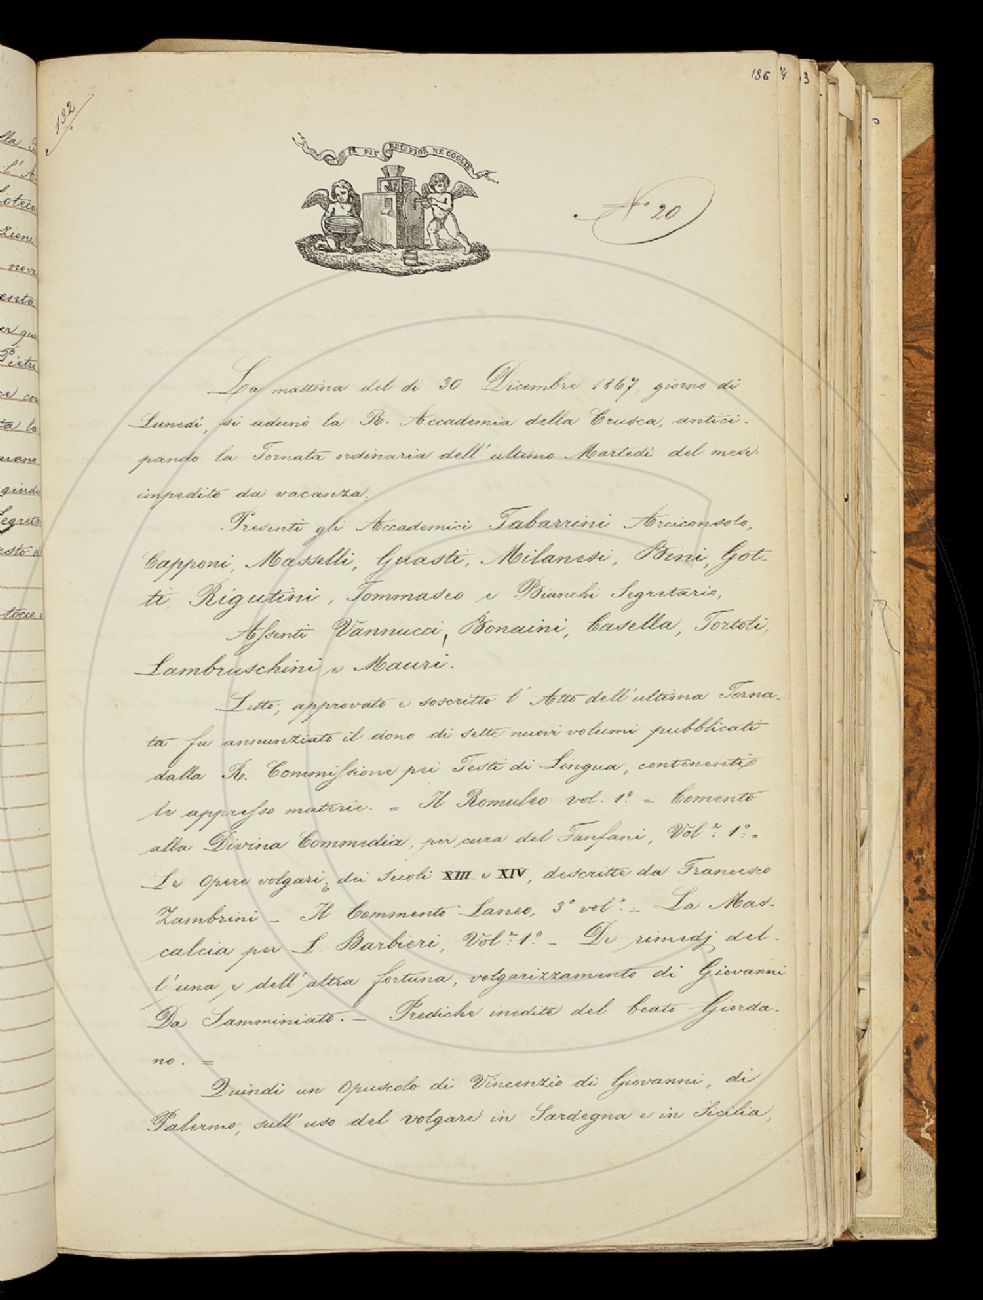 132
186
IL PIÙ BEL FIOR NE COGLIE
N.º 20
La mattina del dì 30 Dicembre 1867, giorno di
Lunedì, si adunò la R. Accademia della Crusca, antici-
pando la Tornata ordinaria dell'ultimo Martedì del mese
impedito da vacanza.
Presenti gli Accademici Tabarrini Arciconsolo,
Capponi, Masselli, Guasti, Milanesi, Bini, Got-
ti Rigutini, Tommaseo e Bianchi Segretario,
Assenti Vannucci, Bonaini, Casella, Tortoli,
Lambruschini e Mauri.
Letto, approvato e soscritto l'Atto dell'ultima Torna-
ta fu annunziato il dono di sette nuovi volumi pubblicati
dalla R. Commissione pei Testi di Lingua, contenenti
le appresso materie. = Il Romuleo vol. 1º = Comento
alla Divina Commedia, per cura del Fanfani, Vol.e 1º =
Le Opere volgari dei Secoli XIII e XIV, descritte da Francesco
Zambrini — Il Commento Laneo, 3º vol.e — La Mas-
calcia per L. Barbieri, Vol.e 1º — De rimedj del-
l'una e dell'altra fortuna, volgarizzamento di Giovanni
Da Samminiato. — Prediche inedite del beato Giorda-
no. =
Quindi un Opuscolo di Vincenzio di Giovanni, di
Palermo, sull'uso del volgare in Sardegna e in Sicilia,